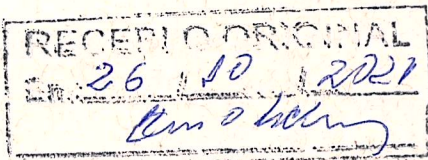 RECEBI O ORIGINAL
Em 26 / 10 / 2021